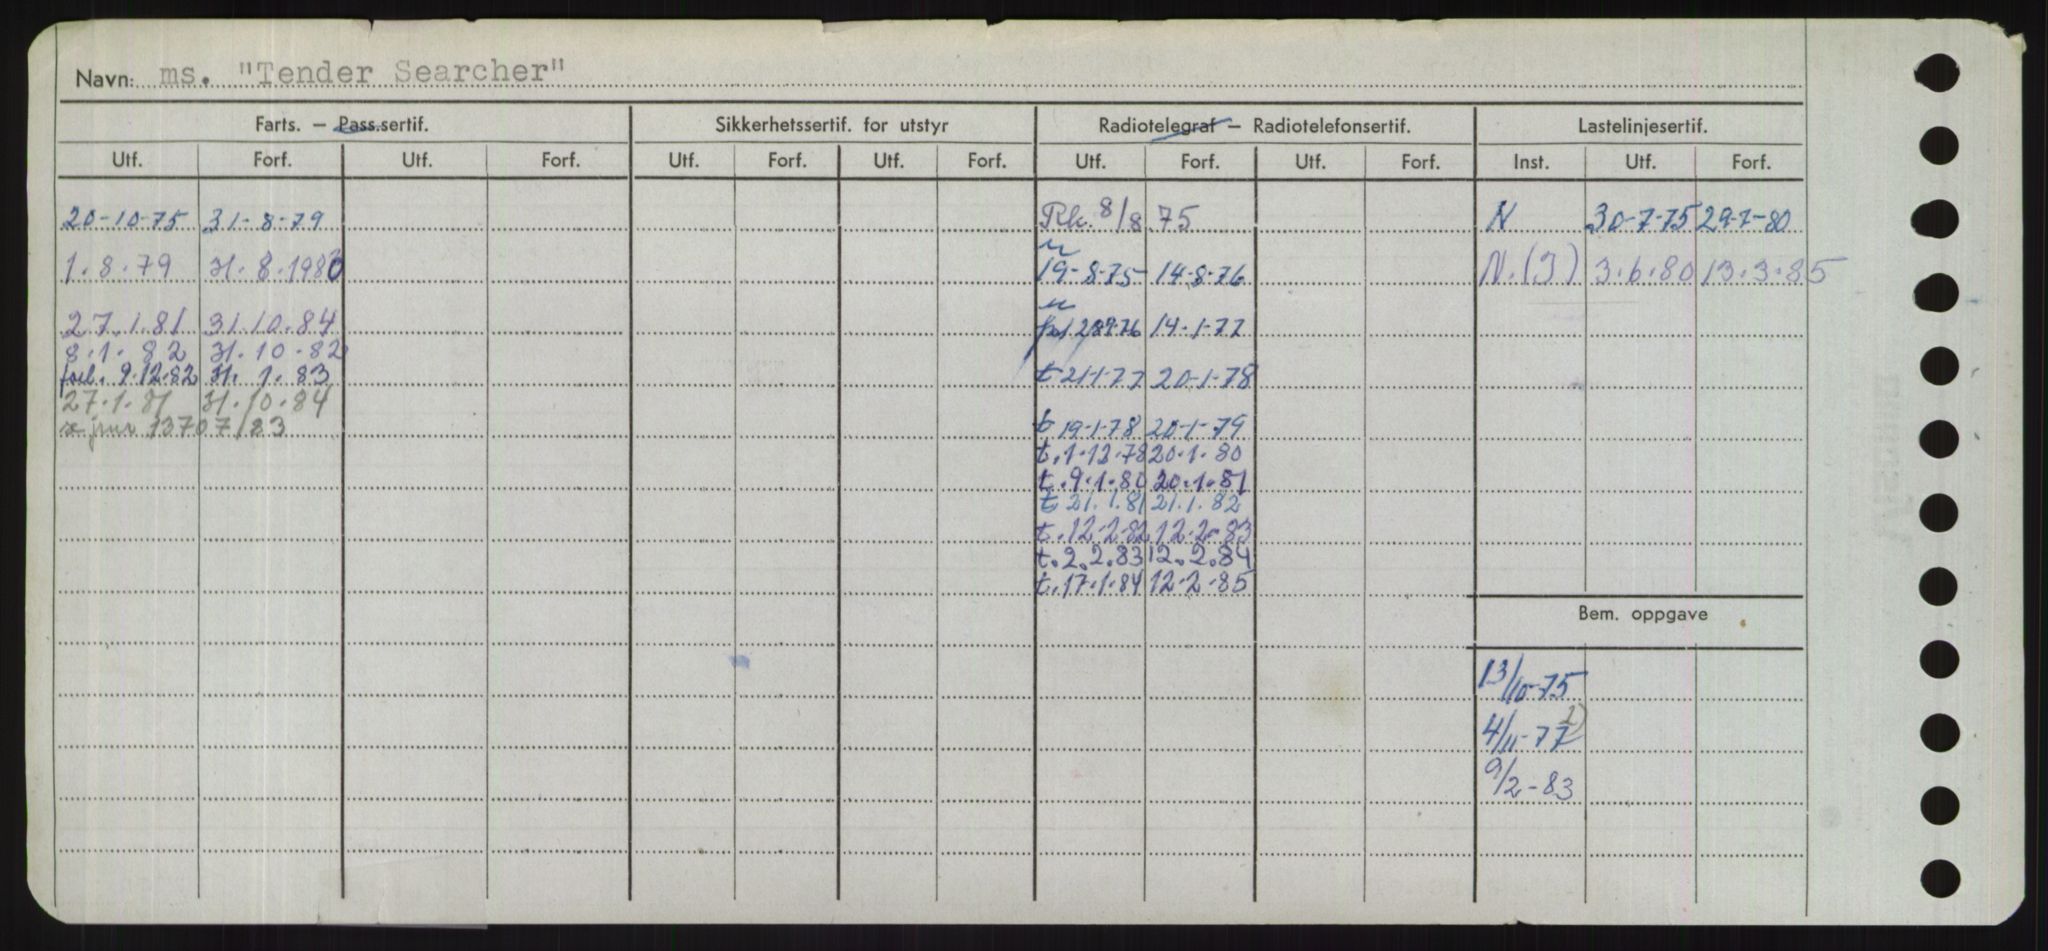 Navn: ms. "Tender Searcher"
Farts. — Pass.sertif. Sikkerhetssertif. for utstyr Radiotelegraf — Radiotelefonsertif. Lastelinjesertif.
Utf. Forf. Utf. Forf. Utf. Forf. Utf. Forf. Utf. Forf. Utf. Forf. Inst. Utf. Forf.
20-10-75 31-8-79 Rk. 8/8 75 N 30-7-75 29-7-80
1.8.79 31.8.1980 19-8-75 14-8-76 N.(J) 3.6.80 13.3.85
27.1.81 31.10.84 14-1-77
8.1.82 31.10.82
9.12.82 31.1.83 t 21-1-77 20-1-78
27.1.81 31.10.84
13707/83 t 19-1-78 20-1-79
t.1.12.78 20.1.80
t.9.1.80 20.1.81
t 21.1.81 21.1.82
t.12.2.82 12.2.83
t.2.2.83 12.2.84
t.17.1.84 12.2.85
Bem. oppgave
13/10-75
4/11-77
9/2-83